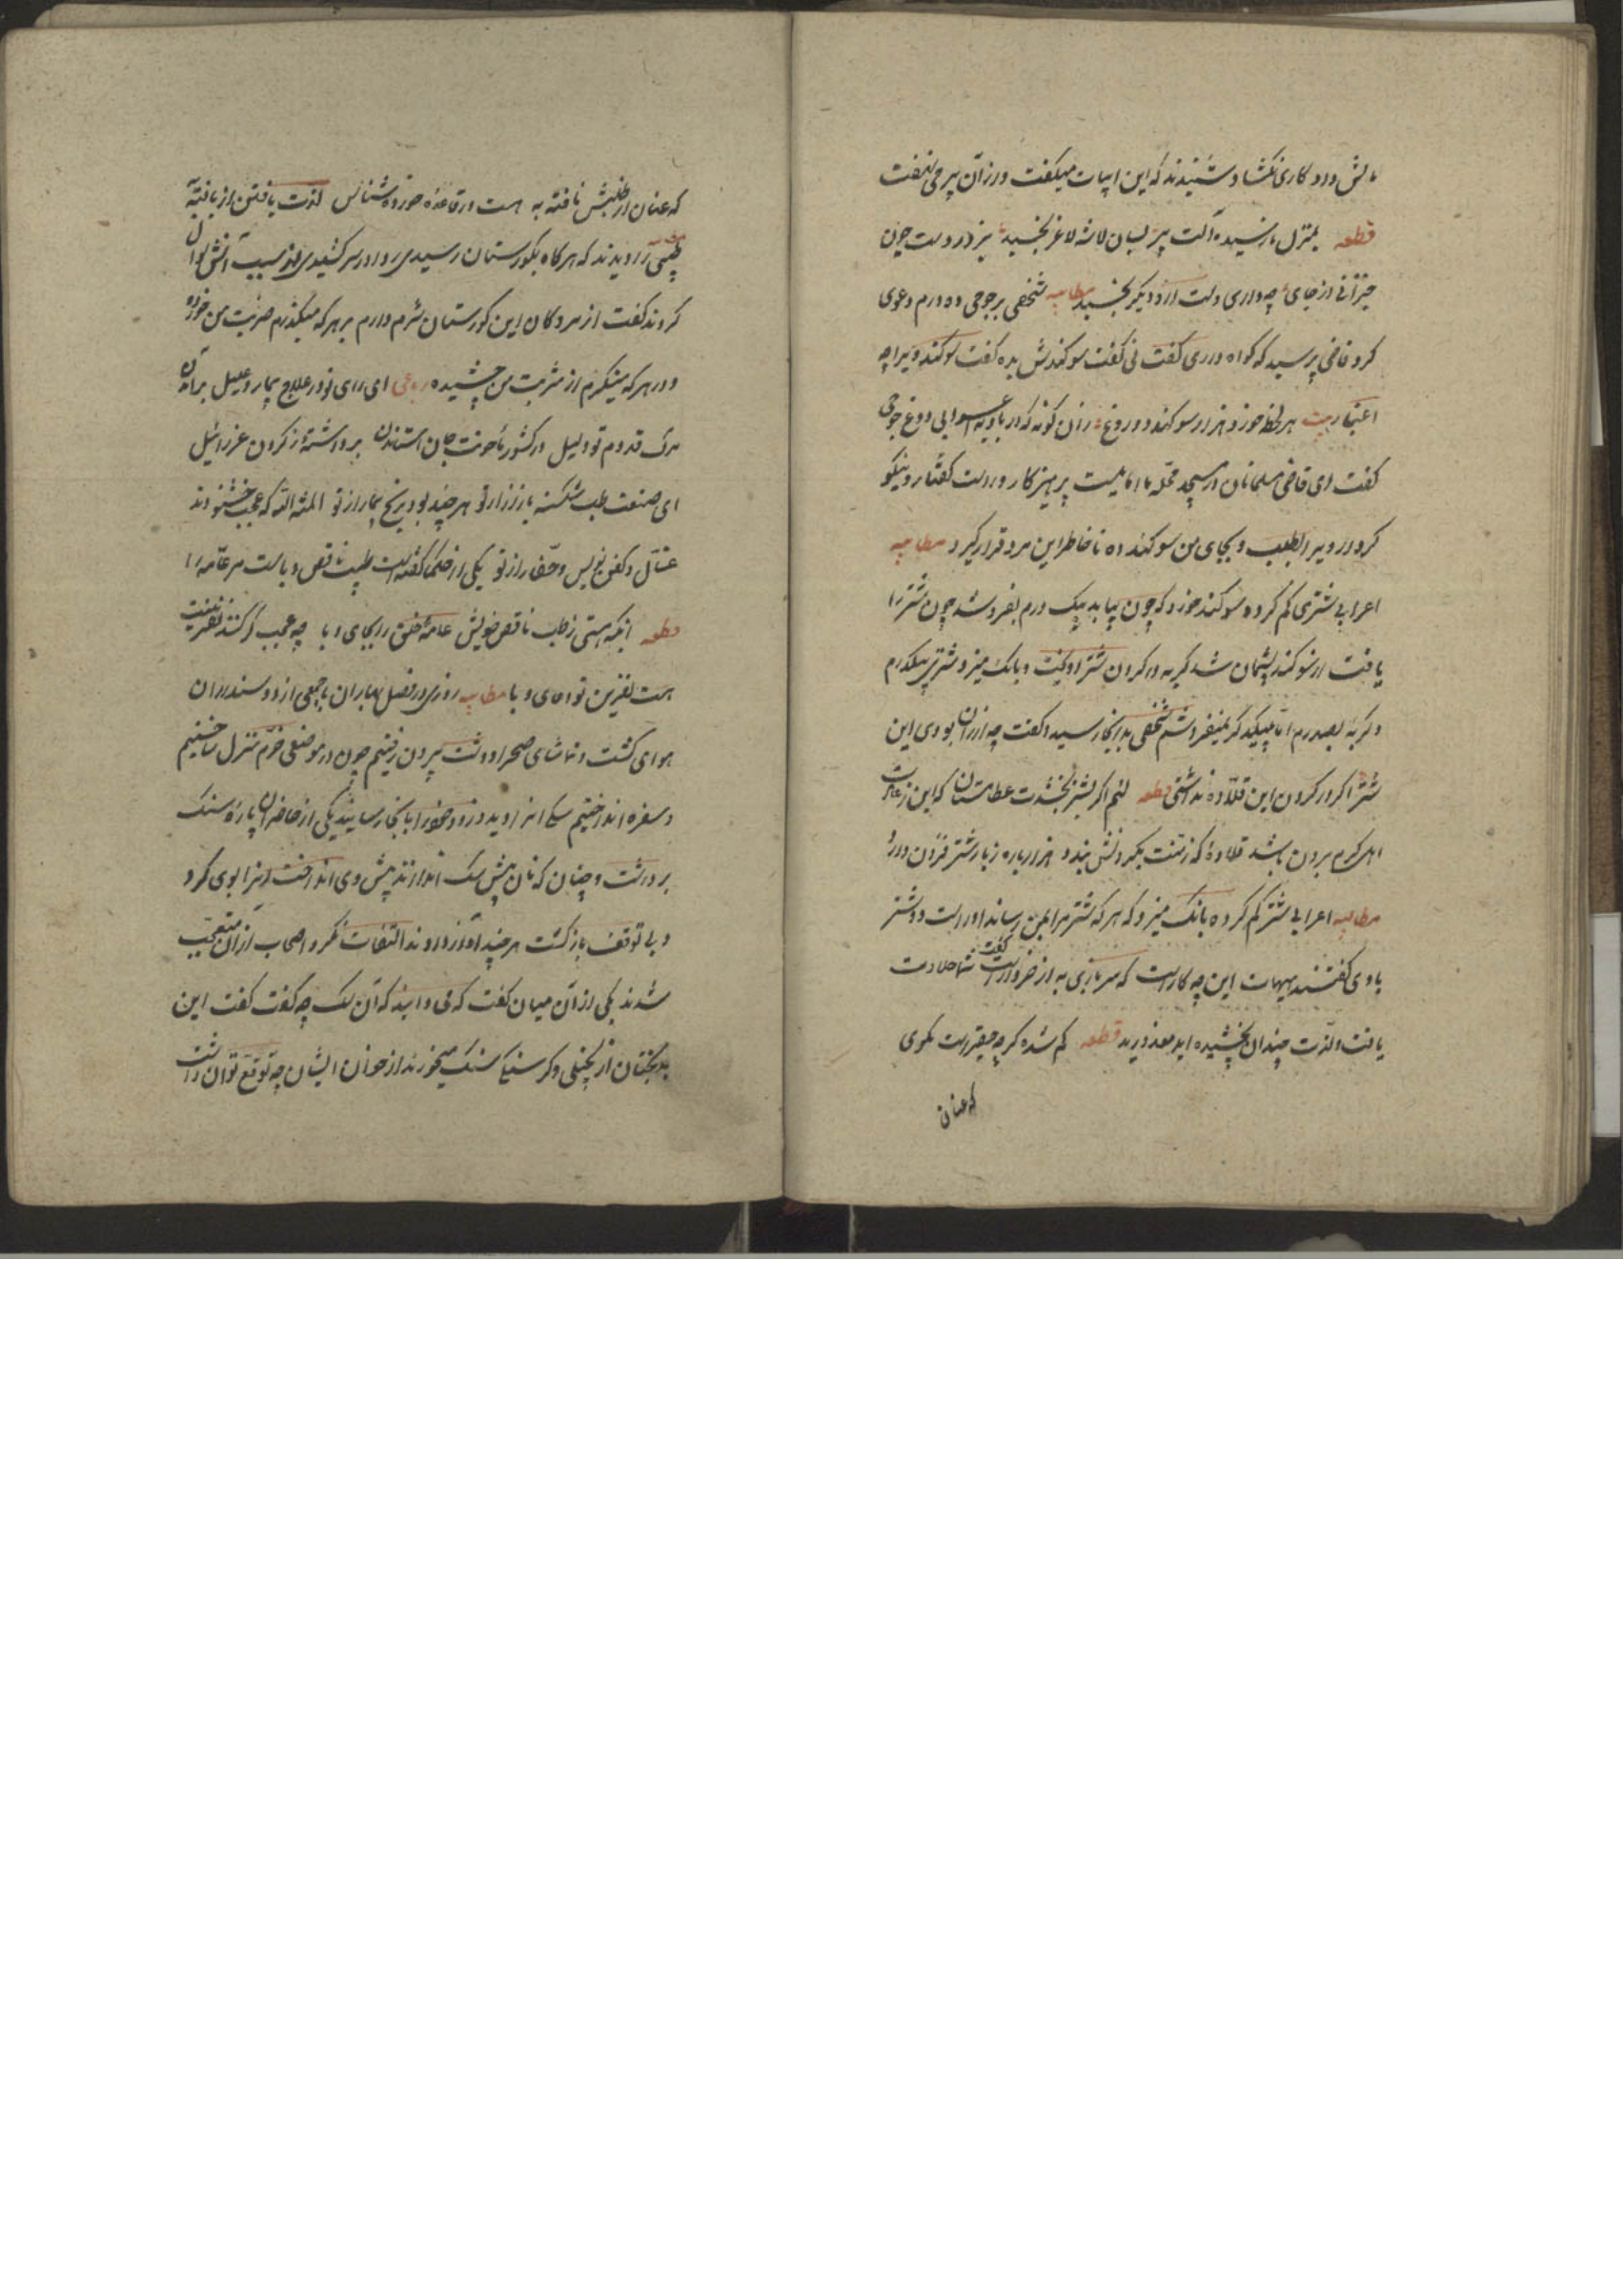 مالش داد کاری نگشاد شنیدند که این ابیات میگفت و زان پیر حی نهفت
قطعه بمنزل نارسیده آلت پیر بسان لاشه لاغر بخسپید نیز در دست چون
خیزانی از جای چه داری دست ازو دیگر بخسپد مطایبه شخصی بر جوحی ده درم دعوی
کرد قاضی پرسید که گواه داری گفت نی گفت سوگندش بده گفت سوگند ویرا چه
اعتبار بیت هر لحظه خورد هزار سوگند دروغ زان گونه که در بادیه اعرابی دوغ جوحی
گفت ای قاضی مسلمانان در مسجد محله ما امامیست پرهیزکار و راست گفتار و نیکو
کردار ویرا بطلب و بجای من سوگند ده تا خاطر این مرد قرار گیرد مطایبه
اعرابی شتری گم کرده سوگند خورد که چون بیابد بیک درم بفروشد چون شتر را
یافت از سوگند پشیمان شد گربه در گردن شتر آویخت و بانک میزد شتری بیکدرم
و گربه بصد درم اما بیکدیگر نمیفروشم شخصی بدانجا رسید و گفت چه ارزان بودی این
شتر اگر در گردن این قلاده نداشتی قطعه لئیم اگر بشتر بخشدت عطا مستان که این ز عادت
اهل کرم برون باشد قلادهٔ که ز منت بگردنش بندد هزار باره ز بار شتر فزون
مطایبه اعرابی شتر گم کرده بانک میزد که هر که شتر مرا بمن رساند او راست دو شتر
با وی گفتند هیهات این چه کارست که سرباری به از خروارست گفت شما حلاوت
یافت و لذت چندان نچشیده اید معذورید قطعه گم شده گرچه حقیرست مگوی
که عنان
که عنان از طلبش تافته به هست در قاعدهٔ خرده شناس لذت یافتن از یافته
طبیبی را دیدند که هر گاه بگورستان رسیدی ردا در سر کشیدی از سبب آنش سوال
کردند گفت از مردگان این گورستان شرم دارم بر هر که میگذرم ضربت من خورده
و در هر که مینگرم از شربت من چشیده رباعی ای رای تو در علاج بیمار و علیل بر آمدن
مرگ قدوم تو دلیل در کشور ما مؤنت جان استاندن برداشتهٔ ز گردن عزرائیل
ای صنعت طب شکسته بازار از تو هر چند بود برنج بیمار از تو المنة لله که عجب خشنودند
غسال و کفن نویس و حفار از تو یکی از حکما گفته است طبیب ناقص وبا است مر عامه را
قطعه ایکه هستی ز طب ناقص خویش عامهٔ خلق را بجای وبا چه عجب گر کنند نفرینت
هست نفرین تو دعای وبا مطایبه روزی در فصل بهاران با جمعی از دوستداران
هوای گشت و تماشای صحرا و دشت بیرون رفتیم چون در موضعی خرم منزل ساختیم
و سفره انداختیم سگی از دور آنرا دید و زود خود را بآنجا رسانید یکی از حاضران پاره سنگ
برداشت و چنان که نان پیش سگ اندازند پیش وی انداخت آنرا بوی کرد
و بی توقف بازگشت هر چند آواز دادند التفات نکرد اصحاب از آن متعجب
شدند یکی از آن میان گفت که می دانید که آن سگ چه گفت گفت این
بدبختان از بخیلی و گرسنگی سنگ میخورند از خوان ایشان چه توقع توان داشت